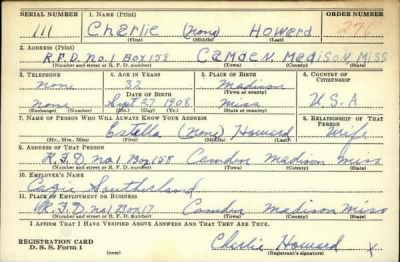 SERIAL NUMBER 1. NAME (Print) ORDER NUMBER
111 Charlie (none) Howard
(First) (Middle) (Last)
2. ADDRESS (Print)
R.F.D. No.1 Box 158 Camden Madison Miss
(Number and street or R. F. D. number) (Town) (County) (State)
3. TELEPHONE 4. AGE IN YEARS 5. PLACE OF BIRTH 6. COUNTRY OF CITIZENSHIP
none 32 Madison
DATE OF BIRTH (Town or county)
none Sept 27 1908 Miss U.S.A
(Exchange) (Number) (Mo.) (Day) (Yr.) (State or country)
7. NAME OF PERSON WHO WILL ALWAYS KNOW YOUR ADDRESS 8. RELATIONSHIP OF THAT PERSON
Estella (none) Howard Wife
(Mr., Mrs., Miss) (First) (Middle) (Last)
9. ADDRESS OF THAT PERSON
R.F.D. no1 Box 158 Camden Madison Miss
(Number and street or R. F. D. number) (Town) (County) (State)
10. EMPLOYER'S NAME
Southerland
11. PLACE OF EMPLOYMENT OR BUSINESS
R.F.D. no1 Box 17 Camden Madison Miss
(Number and street or R. F. D. number) (Town) (County) (State)
I AFFIRM THAT I HAVE VERIFIED ABOVE ANSWERS AND THAT THEY ARE TRUE.
REGISTRATION CARD
D. S. S. Form 1 Charlie Howard x
(Registrant's signature)